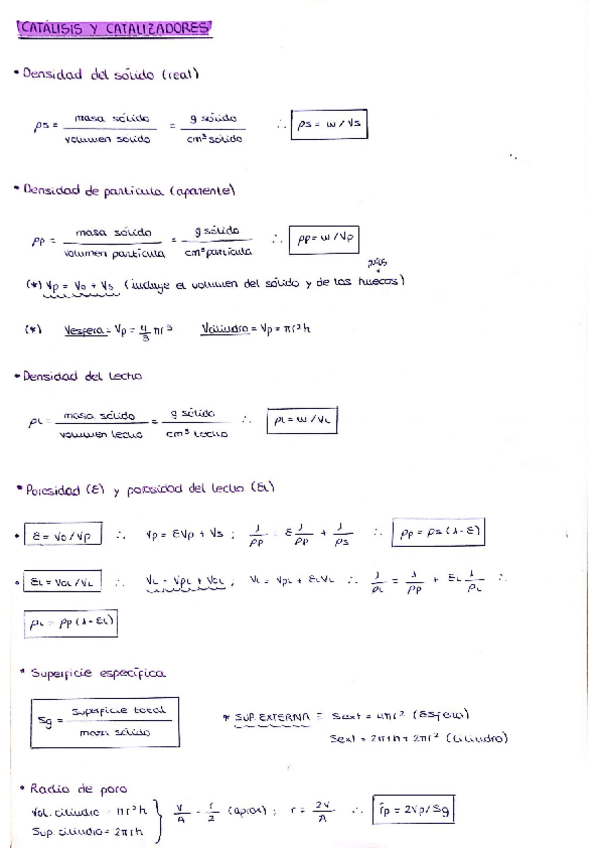 CATÁLISIS Y CATALIZADORES
• Densidad del sólido (real)
ρs = masa sólido / volumen solido = g sólido / cm³ sólido ∴ ρs = w / Vs
• Densidad de partícula (aparente)
ρp = masa sólido / volumen partícula = g sólido / cm³ partícula ∴ ρp = w / Vp
(*) Vp = Vo + Vs (incluye el volumen del sólido y de los huecos)
(*) Vesfera = Vp = 4/3 πr³ Vcilindro = Vp = πr²h
• Densidad del lecho
ρL = masa sólido / volumen lecho = g sólido / cm³ lecho ∴ ρL = w / VL
• Porosidad (ε) y porosidad del lecho (εL)
• ε = Vo / Vp ∴ Vp = εVp + Vs ; 1/ρp = ε 1/ρp + 1/ρs ∴ ρp = ρs (1 - ε)
• εL = VoL / VL ∴ VL = VpL + VoL ; VL = VpL + εLVL ∴ 1/ρL = 1/ρp + εL 1/ρL ∴
ρL = ρp (1 - εL)
• Superficie específica
Sg = superficie total / masa sólido * SUP. EXTERNA = Sext = 4πr² (Esfera)
Sext = 2πrh + 2πr² (Cilindro)
• Radio de poro
Vol. cilindro = πr²h } V/A = r/2 (aprox) ; r = 2V/A ∴ r̄p = 2Vp / Sg
Sup. cilindro = 2πrh